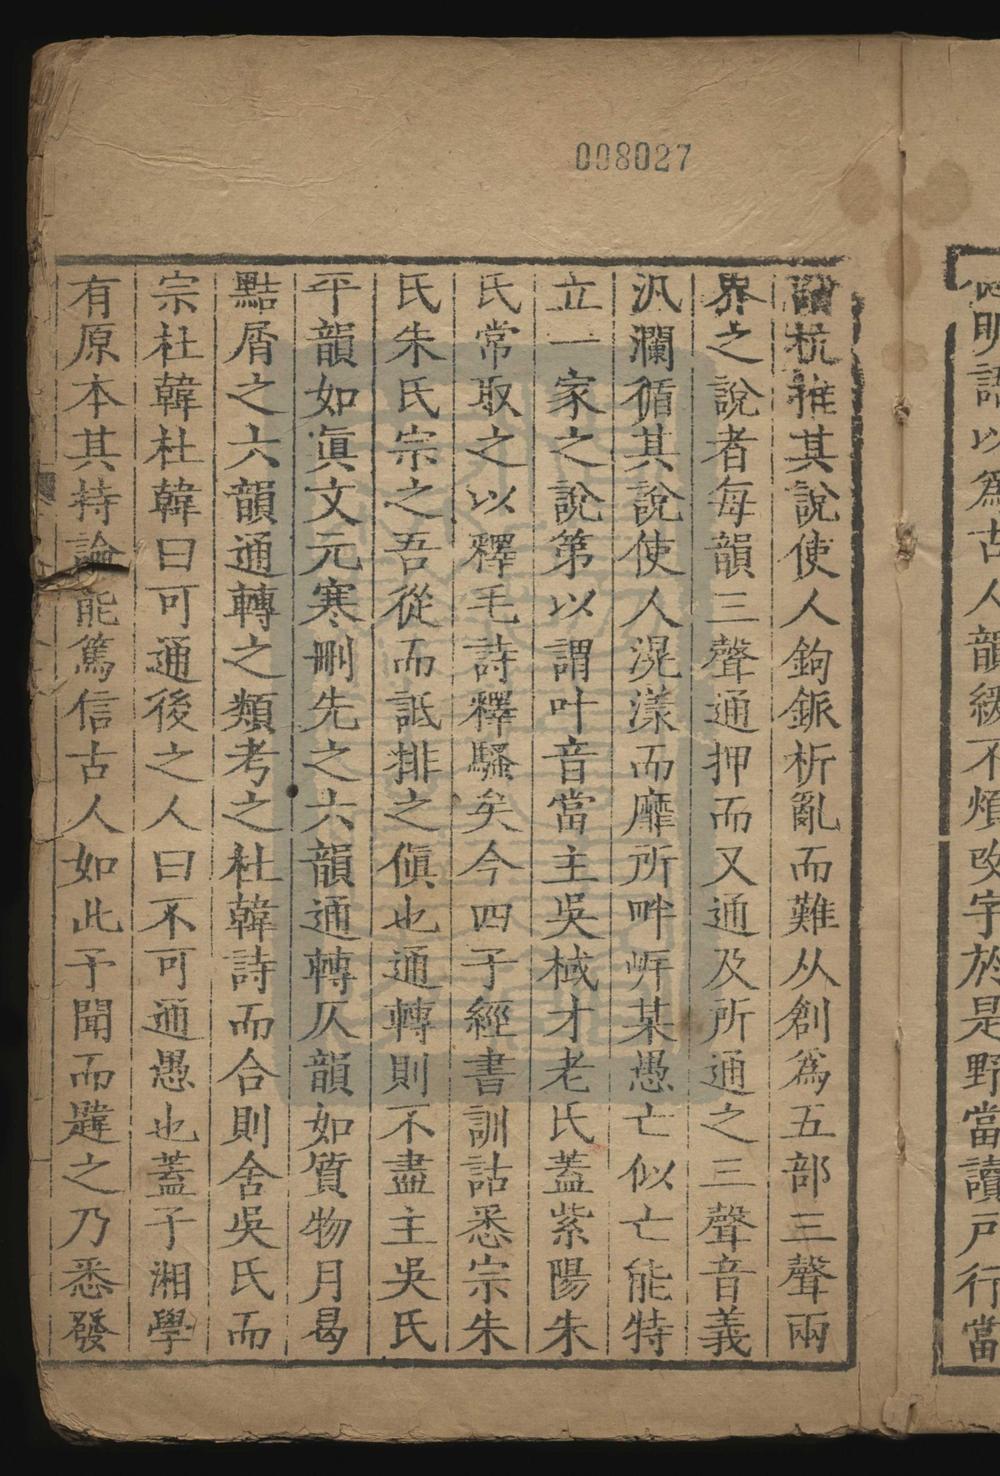 008027
明語以爲古人韻緩不煩改字於是野當讀戸行當
杭推其說使人鉤鈲析亂而難从創爲五部三聲兩
界之說者每韻三聲通押而又通及所通之三聲音義
汎瀾循其說使人滉漾而靡所畔岸某愚亡似亡能特
立一家之說第以謂叶音當主吳棫才老氏蓋紫陽朱
氏常取之以釋毛詩釋騷矣今四子經書訓詁悉宗朱
氏朱氏宗之吾從而詆排之傎也通轉則不盡主吳氏
平韻如眞文元寒刪先之六韻通轉仄韻如質物月曷
點屑之六韻通轉之類考之杜韓詩而合則舍吳氏而
宗杜韓杜韓曰可通後之人曰不可通愚也蓋子湘學
有原本其持論能篤信古人如此予聞而韙之乃悉發